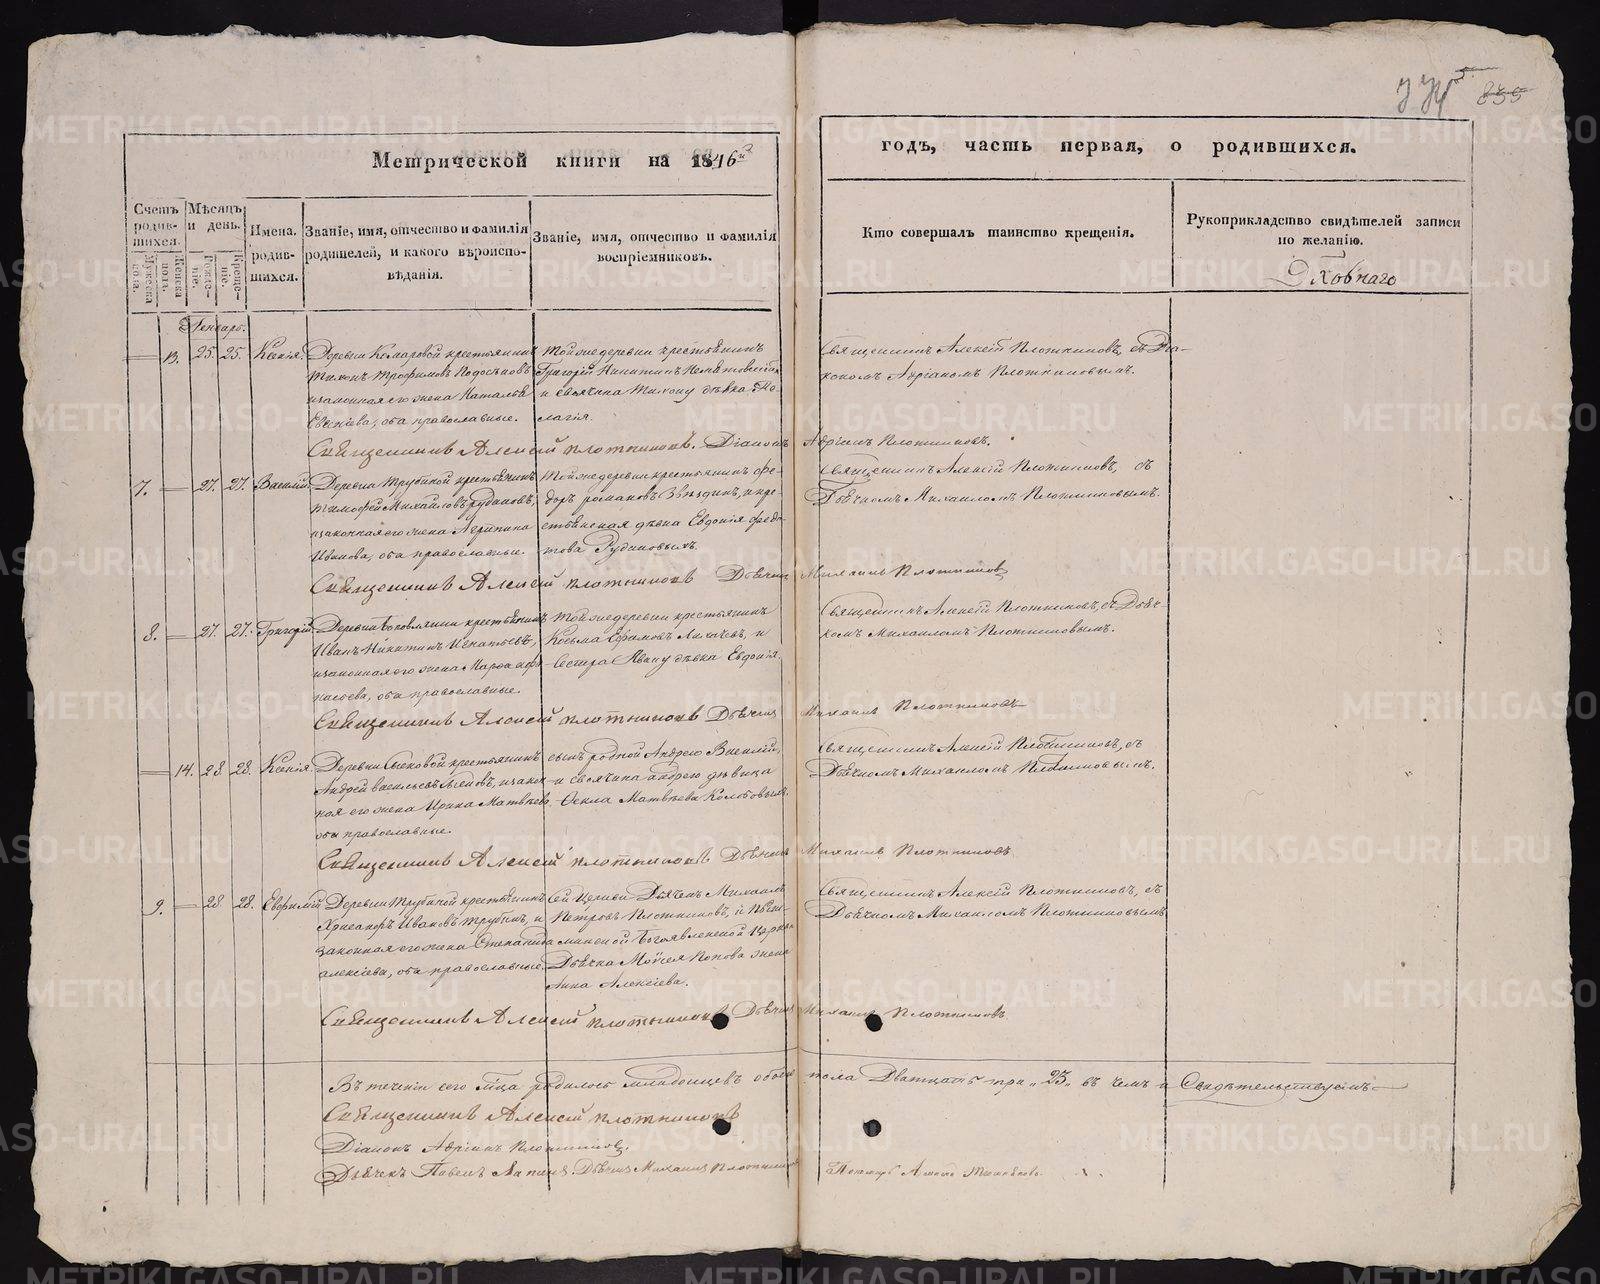 855
Метрической книги на 1846й
годъ, часть первая, о родившихся.
Счетъ родившихся.
Мужеска пола.
Женска пола.
Мѣсяцъ и день.
Рожденіе.
Крещеніе.
Имена родившихся.
Званіе, имя, отчество и фамилія родителей, и какого вѣроисповѣданія.
Званіе, имя, отчество и фамилія воспріемниковъ.
Кто совершалъ таинство крещенія.
Рукоприкладство свидѣтелей записи по желанію.
Январь.
13. 25. 25. Ксенія.
Деревни Комаровой крестьянинъ
Тихонъ Трофимовъ
и законная его жена Наталья
оба православные.
Тойже деревни крестьянинъ
Григорій Никитинъ
и своячина Тихону дѣвка Пе-
лагія.
Священникъ Алексій Плотниковъ, съ Діа-
кономъ Адріаномъ Плотниковымъ.
Священникъ Алексій Плотниковъ. Діаконъ Адріанъ Плотниковъ.
7. 27. 27. Василій.
Деревни Трубиной крестьянинъ
Тимофей Михайловъ Рудаковъ,
и законная его жена Агрипина
Иванова, оба православные.
Тойже деревни крестьянинъ Фе-
доръ Романовъ и кре-
стьянская дѣвка Евдокія Федо-
това
Священникъ Алексій Плотниковъ, съ
Дьячкомъ Михаиломъ Плотниковымъ.
Священникъ Алексій Плотниковъ Дьячекъ Михаилъ Плотниковъ
8. 27. 27. Григорій.
Деревни крестьянинъ
Иванъ Никитинъ Игнатьевъ,
и законная его жена Марфа
оба православные.
Тойже деревни крестьянинъ
Козьма Ефимовъ Лихачевъ, и
сестра Ивану дѣвка Евдокія.
Священникъ Алексій Плотниковъ, съ Дьяч-
комъ Михаиломъ Плотниковымъ.
Священникъ Алексій Плотниковъ Дьячекъ Михаилъ Плотниковъ
14. 28. 28. Ксенія.
Деревни крестьянинъ
Андрей Васильевъ и закон-
ная его жена Ирина Матвѣева,
оба православные.
сынъ родной Андрею Василій,
и своячина Андрею дѣвица
Фекла Матвѣева
Священникъ Алексій Плотниковъ, съ
Дьячкомъ Михаиломъ Плотниковымъ.
Священникъ Алексій Плотниковъ Дьячекъ Михаилъ Плотниковъ
9. 28. 28. Евфимій
Деревни Трубиной крестьянинъ
Хрисанфъ Ивановъ Трубинъ, и
законная его жена Степанида
Алексіева, оба православные.
Сей церкви Дьячекъ Михаилъ
Петровъ Плотниковъ, и
Богоявленской церкви
Дьячка Мойсея Попова жена
Анна Алексіева.
Священникъ Алексій Плотниковъ, съ
Дьячкомъ Михаиломъ Плотниковымъ
Священникъ Алексій Плотниковъ Дьячекъ Михаилъ Плотниковъ
Въ теченіи сего мѣсяца родилось младенцевъ обоего пола дватцать три „23„ въ чемъ и свидѣтельствуемъ
Священникъ Алексій Плотниковъ
Діаконъ Адріанъ Плотниковъ.
Дьячекъ Павелъ Лапинъ. Дьячекъ Михаилъ Плотниковъ
METRIKI.GASO-URAL.RU